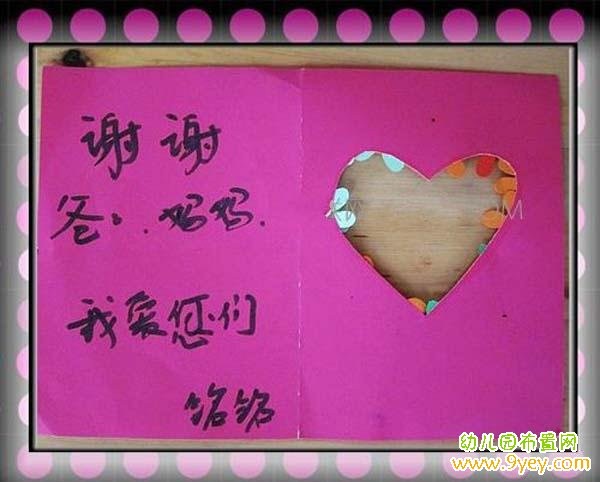 谢谢
爸:.妈妈.
我爱您们
铭铭
幼儿园布置网
www.9yey.com